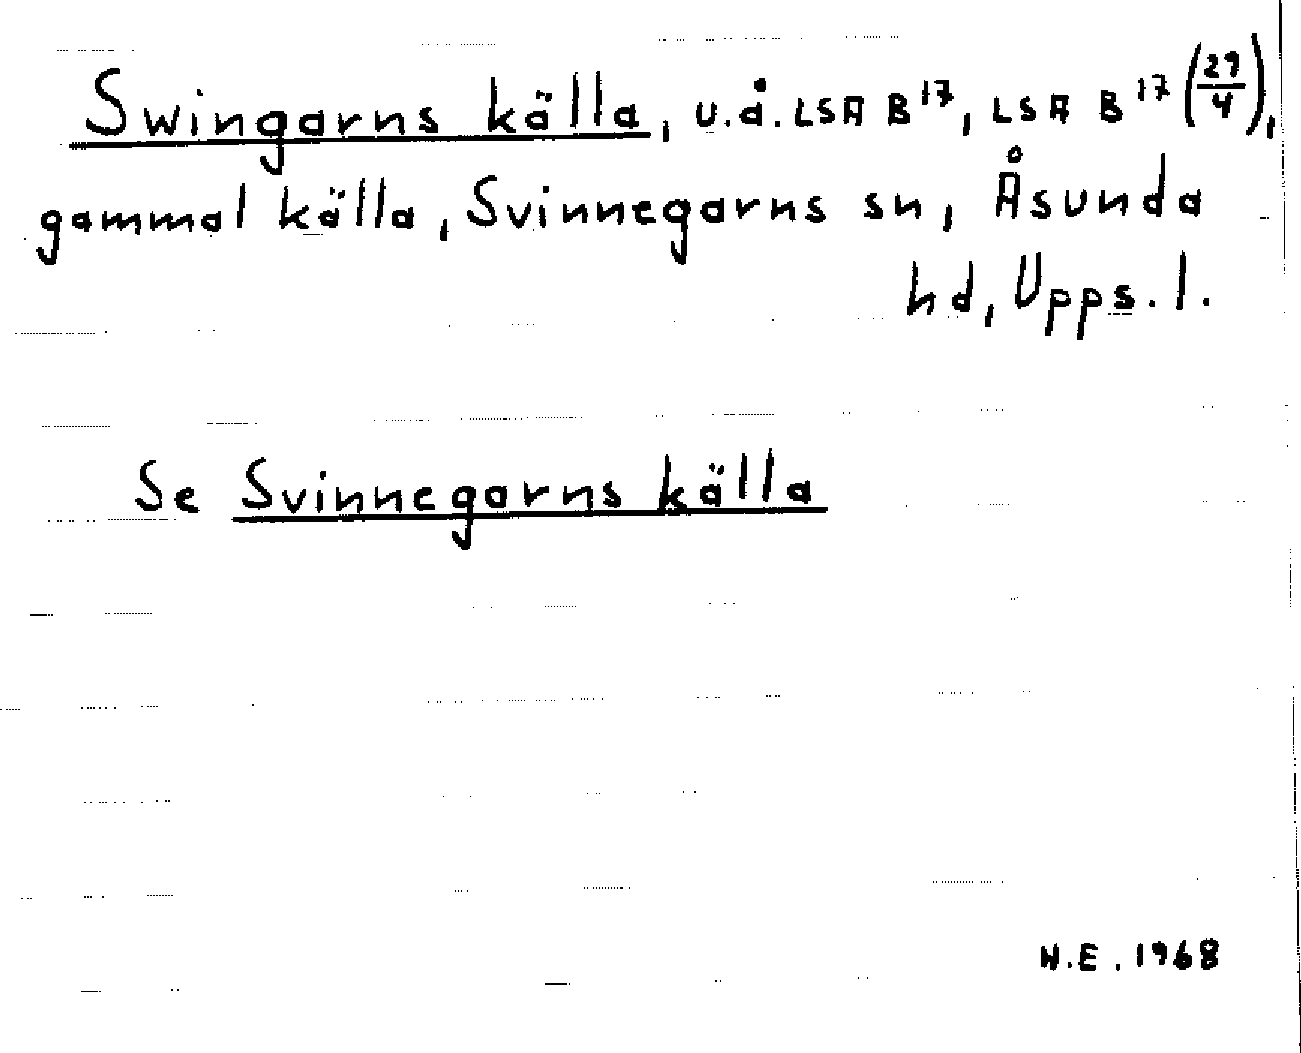 Swingarns källa, u.å. LSA B¹⁷, LSA B¹⁷ (29/4),
gammal källa, Svinnegarns sn, Åsunda
hd, Upps. l.
Se Svinnegarns källa
N.E. 1968